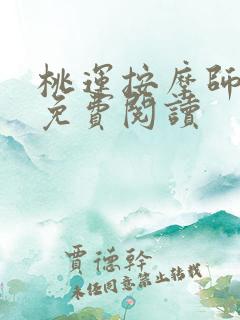 桃運按摩師
免費閱讀
賈德幹
未經同意禁止轉載